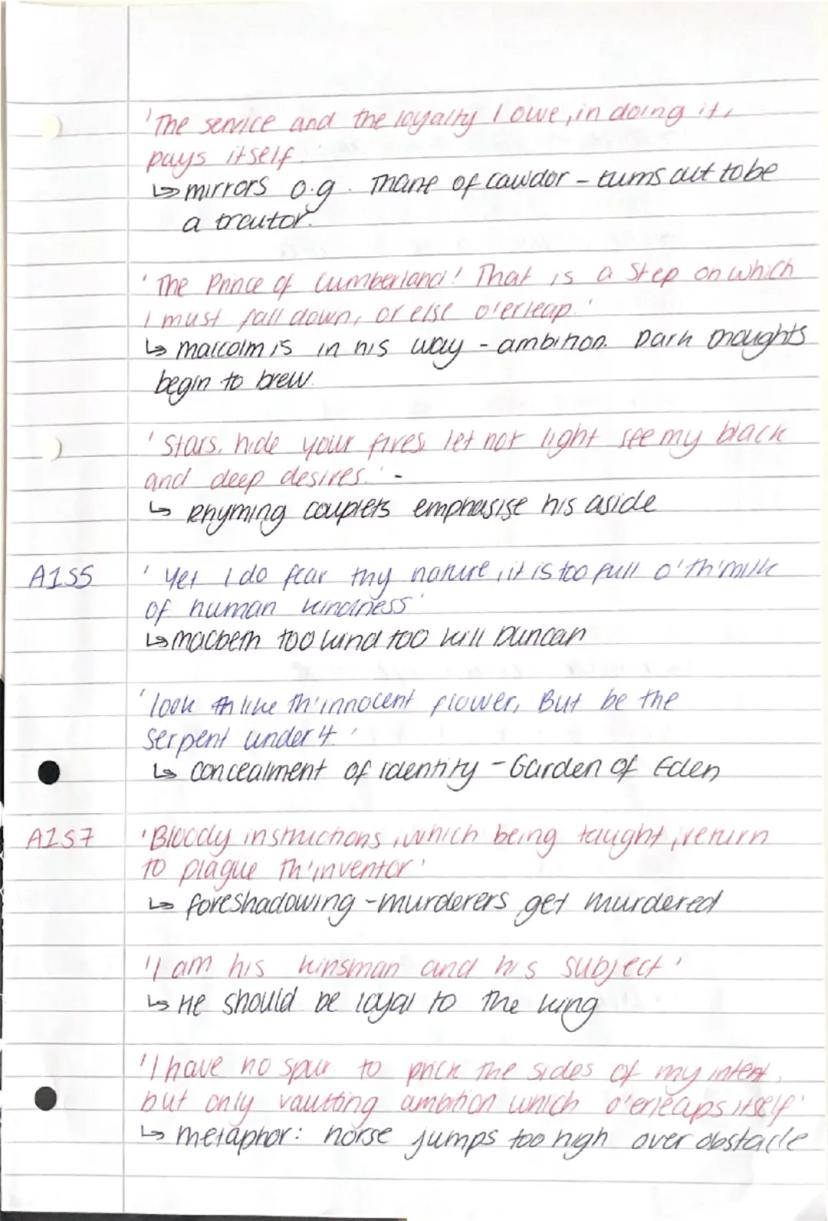 'The service and the loyalty I owe, in doing it,
pays itself.
↳ mirrors o.g. Thane of cawdor - turns out to be
a traitor.
'The Prince of Cumberland! That is a step on which
I must fall down, or else o'erleap.'
↳ malcolm is in his way - ambition. Dark thoughts
begin to brew.
'Stars, hide your fires, let not light see my black
and deep desires.' -
↳ Rhyming couplets emphasise his aside
A1S5 'Yet I do fear thy nature, it is too full o'th'milk
of human kindness'
↳ macbeth too kind too kill Duncan
'look like th'innocent flower, But be the
serpent under't.'
↳ concealment of identity - Garden of Eden
A1S7 'Bloody instructions, which being taught, return
to plague th'inventor'
↳ foreshadowing - murderers get murdered
'I am his kinsman and his subject'
↳ He should be loyal to the king
'I have no spur to prick the sides of my intent,
but only vaulting ambition which o'erleaps itself'
↳ metaphor: horse jumps too high over obstacle